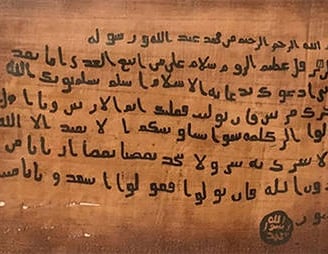 الله الرحمن الرحيم من محمد عبد الله ورسوله
هرقل عظيم الروم سلام على من اتبع الهدى اما بعد
ادعوك بدعاية الاسلام اسلم تسلم يوتك الله
فان توليت فعليك اثم
الكلمة سوا بيننا وبينكم الا نعبد الا الله
نشرك به ولا يتخذ بعضنا بعضا اربابا من
دون الله فان تولوا فقولوا اشهدوا بانا
الله
رسول
محمد